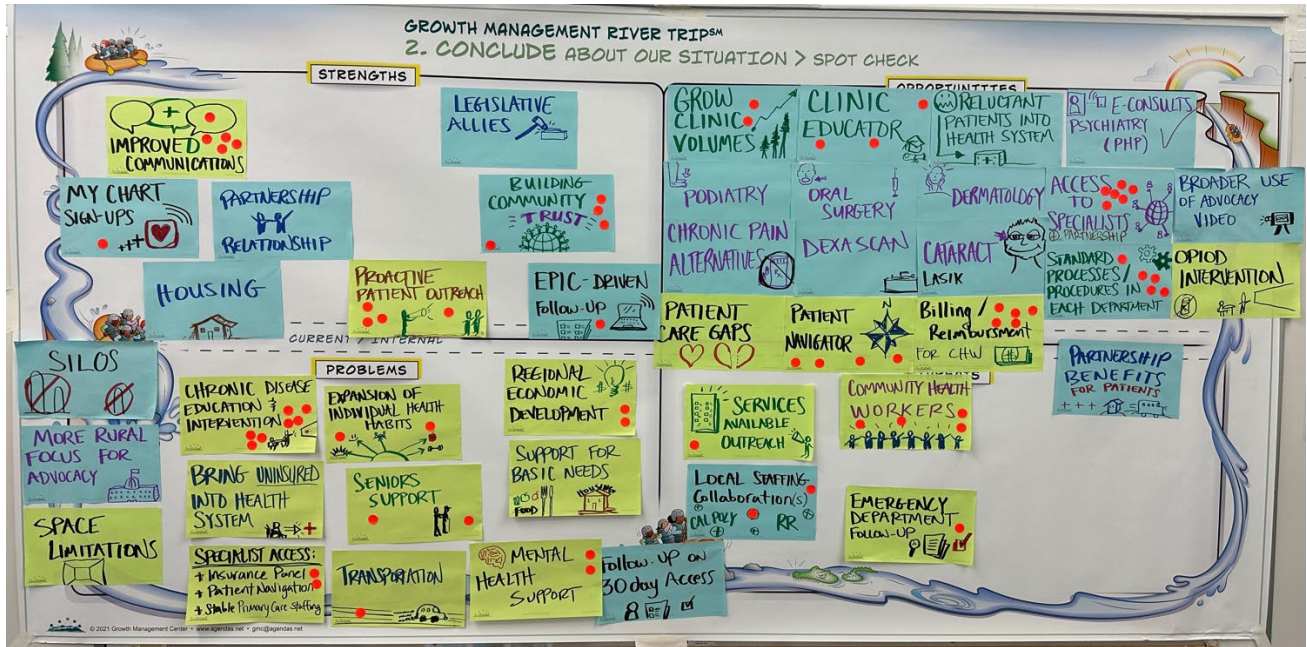 GROWTH MANAGEMENT RIVER TRIP℠
2. CONCLUDE ABOUT OUR SITUATION > SPOT CHECK
STRENGTHS
IMPROVED
COMMUNICATIONS
LEGISLATIVE
ALLIES
MY CHART
SIGN-UPS
PARTNERSHIP
RELATIONSHIP
BUILDING
COMMUNITY
TRUST
HOUSING
PROACTIVE
PATIENT OUTREACH
EPIC-DRIVEN
Follow-UP
CURRENT / INTERNAL
OPPORTUNITIES
GROW
CLINIC
VOLUMES
CLINIC
EDUCATOR
RELUCTANT
PATIENTS INTO
HEALTH SYSTEM
E-CONSULTS
PSYCHIATRY
(PHP)
PODIATRY
ORAL
SURGERY
DERMATOLOGY
ACCESS
TO
SPECIALISTS
PARTNERSHIP
BROADER USE
OF ADVOCACY
VIDEO
CHRONIC PAIN
ALTERNATIVES
DEXASCAN
CATARACT
LASIK
STANDARD
PROCESSES/
PROCEDURES IN
EACH DEPARTMENT
OPIOD
INTERVENTION
PATIENT
CARE GAPS
PATIENT
NAVIGATOR
N
Billing/
Reimbursment
FOR CHW
PROBLEMS
SILOS
CHRONIC DISEASE
EDUCATION &
INTERVENTION
EXPANSION OF
INDIVIDUAL HEALTH
HABITS
REGIONAL
ECONOMIC
DEVELOPMENT
MORE RURAL
FOCUS FOR
ADVOCACY
BRING UNINSURED
INTO HEALTH
SYSTEM
SENIORS
SUPPORT
SUPPORT FOR
BASIC NEEDS
FOOD
HOUSING
SPACE
LIMITATIONS
SPECIALIST ACCESS:
+ Insurance Panel
+ Patient Navigation
+ Stable Primary Care Staffing
TRANSPORTATION
MENTAL
HEALTH
SUPPORT
Follow-UP ON
30 day Access
SERVICES
AVAILABLE
OUTREACH
COMMUNITY HEALTH
WORKERS
PARTNERSHIP
BENEFITS
FOR PATIENTS
LOCAL STAFFING
Collaboration(s)
CAL POLY
RR
EMERGENCY
DEPARTMENT
FOLLOW-UP
© 2021 Growth Management Center • www.agendas.net • gmc@agendas.net